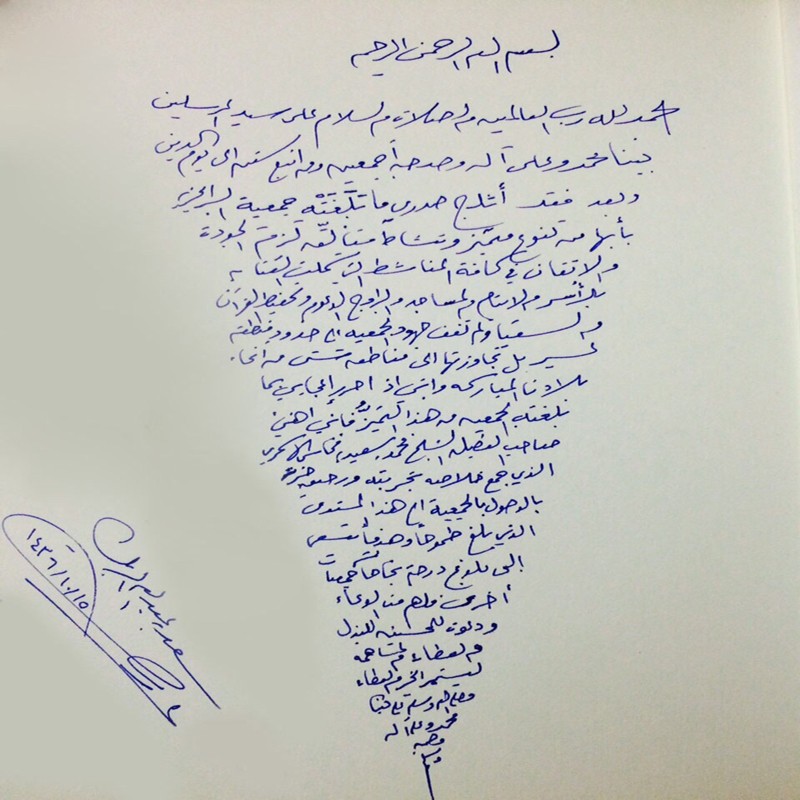 بسم الله الرحمن الرحيم
الحمد لله رب العالمين والصلاة والسلام على سيد المرسلين
نبينا محمد وعلى آله وصحبه أجمعين ومن اتبع سنته الى يوم الدين
وبعد فقد أثلج صدري ما بلغته جمعية البر الخيرية
بأبها من تنوع مميز ونشاط الجودة
والاتقان في كافة المناشط التي
بالأسر والايتام والمساجد والزواج والدعوة وتحفيظ القرآن
والسقيا ولم تقف جهود الجمعية الى حدود منطقة
عسير بل تجاوزتها الى مناطق شتى من انحاء
بلادنا المباركة وانني اذ احرر اعجابي بما
بلغته الجمعية من هذا التميز فأنني أهنئ
صاحب الفضيلة الشيخ محمد سعيد
الذي جمع خلاصة تجربته ورحيق خبرته
بالوصول بالجمعية الى هذا المستوى
الذي بلغ طموحاً وهدفاً
إلى بلوغ درجة نجاحه جمعيات
أخرى فلهم منا الدعاء
ودعوة للمحسنين للبذل
والعطاء والمساهمة
ليستمر الخير والعطاء
وصلى الله وسلم على نبينا
محمد وعلى آله
وصحبه
وسلم
سعد
١٤٣٦/١٠/١٥